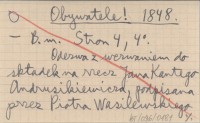 Obywatele! 1848.
- B. m. Stron 4, 4°.
Odezwa z wezwaniem do
składek na rzecz Jana Kantego
Andrusikiewicza, podpisana
przez Piotra Wasilewskiego